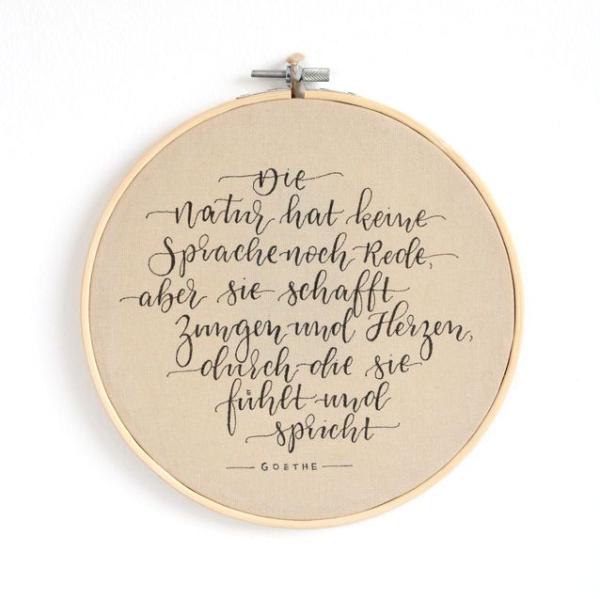 Die
Natur hat keine
Sprache noch Rede,
aber sie schafft
Zungen und Herzen,
durch die sie
fühlt und
spricht
GOETHE